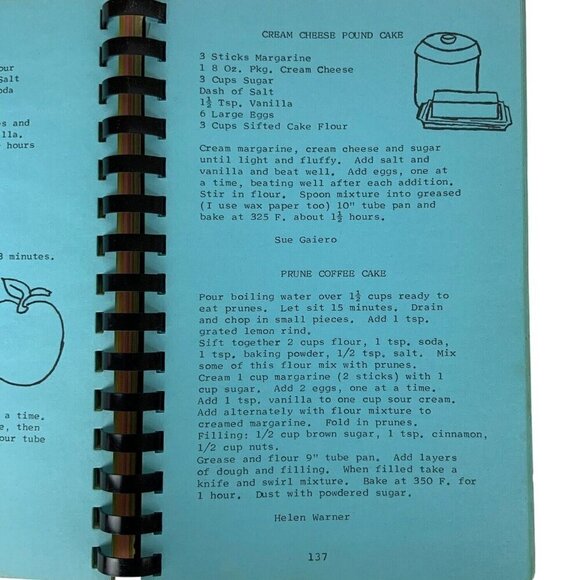 our
Salt
oda
s and
lla.
hours
8 minutes.
a time.
e, then
our tube
CREAM CHEESE POUND CAKE
3 Sticks Margarine
1 8 Oz. Pkg. Cream Cheese
3 Cups Sugar
Dash of Salt
1½ Tsp. Vanilla
6 Large Eggs
3 Cups Sifted Cake Flour
Cream margarine, cream cheese and sugar
until light and fluffy. Add salt and
vanilla and beat well. Add eggs, one at
a time, beating well after each addition.
Stir in flour. Spoon mixture into greased
(I use wax paper too) 10" tube pan and
bake at 325 F. about 1½ hours.
Sue Gaiero
PRUNE COFFEE CAKE
Pour boiling water over 1½ cups ready to
eat prunes. Let sit 15 minutes. Drain
and chop in small pieces. Add 1 tsp.
grated lemon rind.
Sift together 2 cups flour, 1 tsp. soda,
1 tsp. baking powder, 1/2 tsp. salt. Mix
some of this flour mix with prunes.
Cream 1 cup margarine (2 sticks) with 1
cup sugar. Add 2 eggs, one at a time.
Add 1 tsp. vanilla to one cup sour cream.
Add alternately with flour mixture to
creamed margarine. Fold in prunes.
Filling: 1/2 cup brown sugar, 1 tsp. cinnamon,
1/2 cup nuts.
Grease and flour 9" tube pan. Add layers
of dough and filling. When filled take a
knife and swirl mixture. Bake at 350 F. for
1 hour. Dust with powdered sugar.
Helen Warner
137